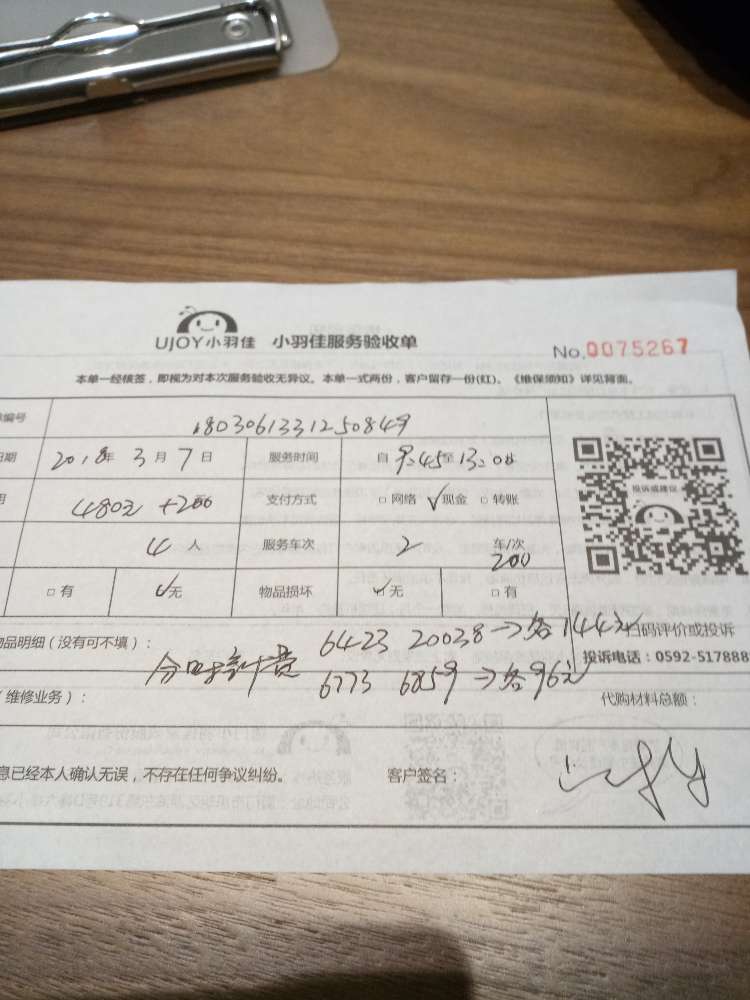 UJOY小羽佳 小羽佳服务验收单
No.0075267
本单一经核签，即视为对本次服务验收无异议。本单一式两份，客户留存一份(红)。《维保须知》详见背面。
编号 1803061331250849
日期 2018年 3月 7日 服务时间 自 9:45至 13:00
用 480元 +200 支付方式 □网络 ✓现金 □转账
投诉或建议
4人 服务车次 2 车/次
200
□有 ✓无 物品损坏 ✓无 □有
物品明细（没有可不填）： 6423 20038→各144元
扫码评价或投诉
分时计费 6773 6859→各96元
投诉电话：0592-517888
（维修业务）： 代购材料总额：
息已经本人确认无误，不存在任何争议纠纷。 客户签名：